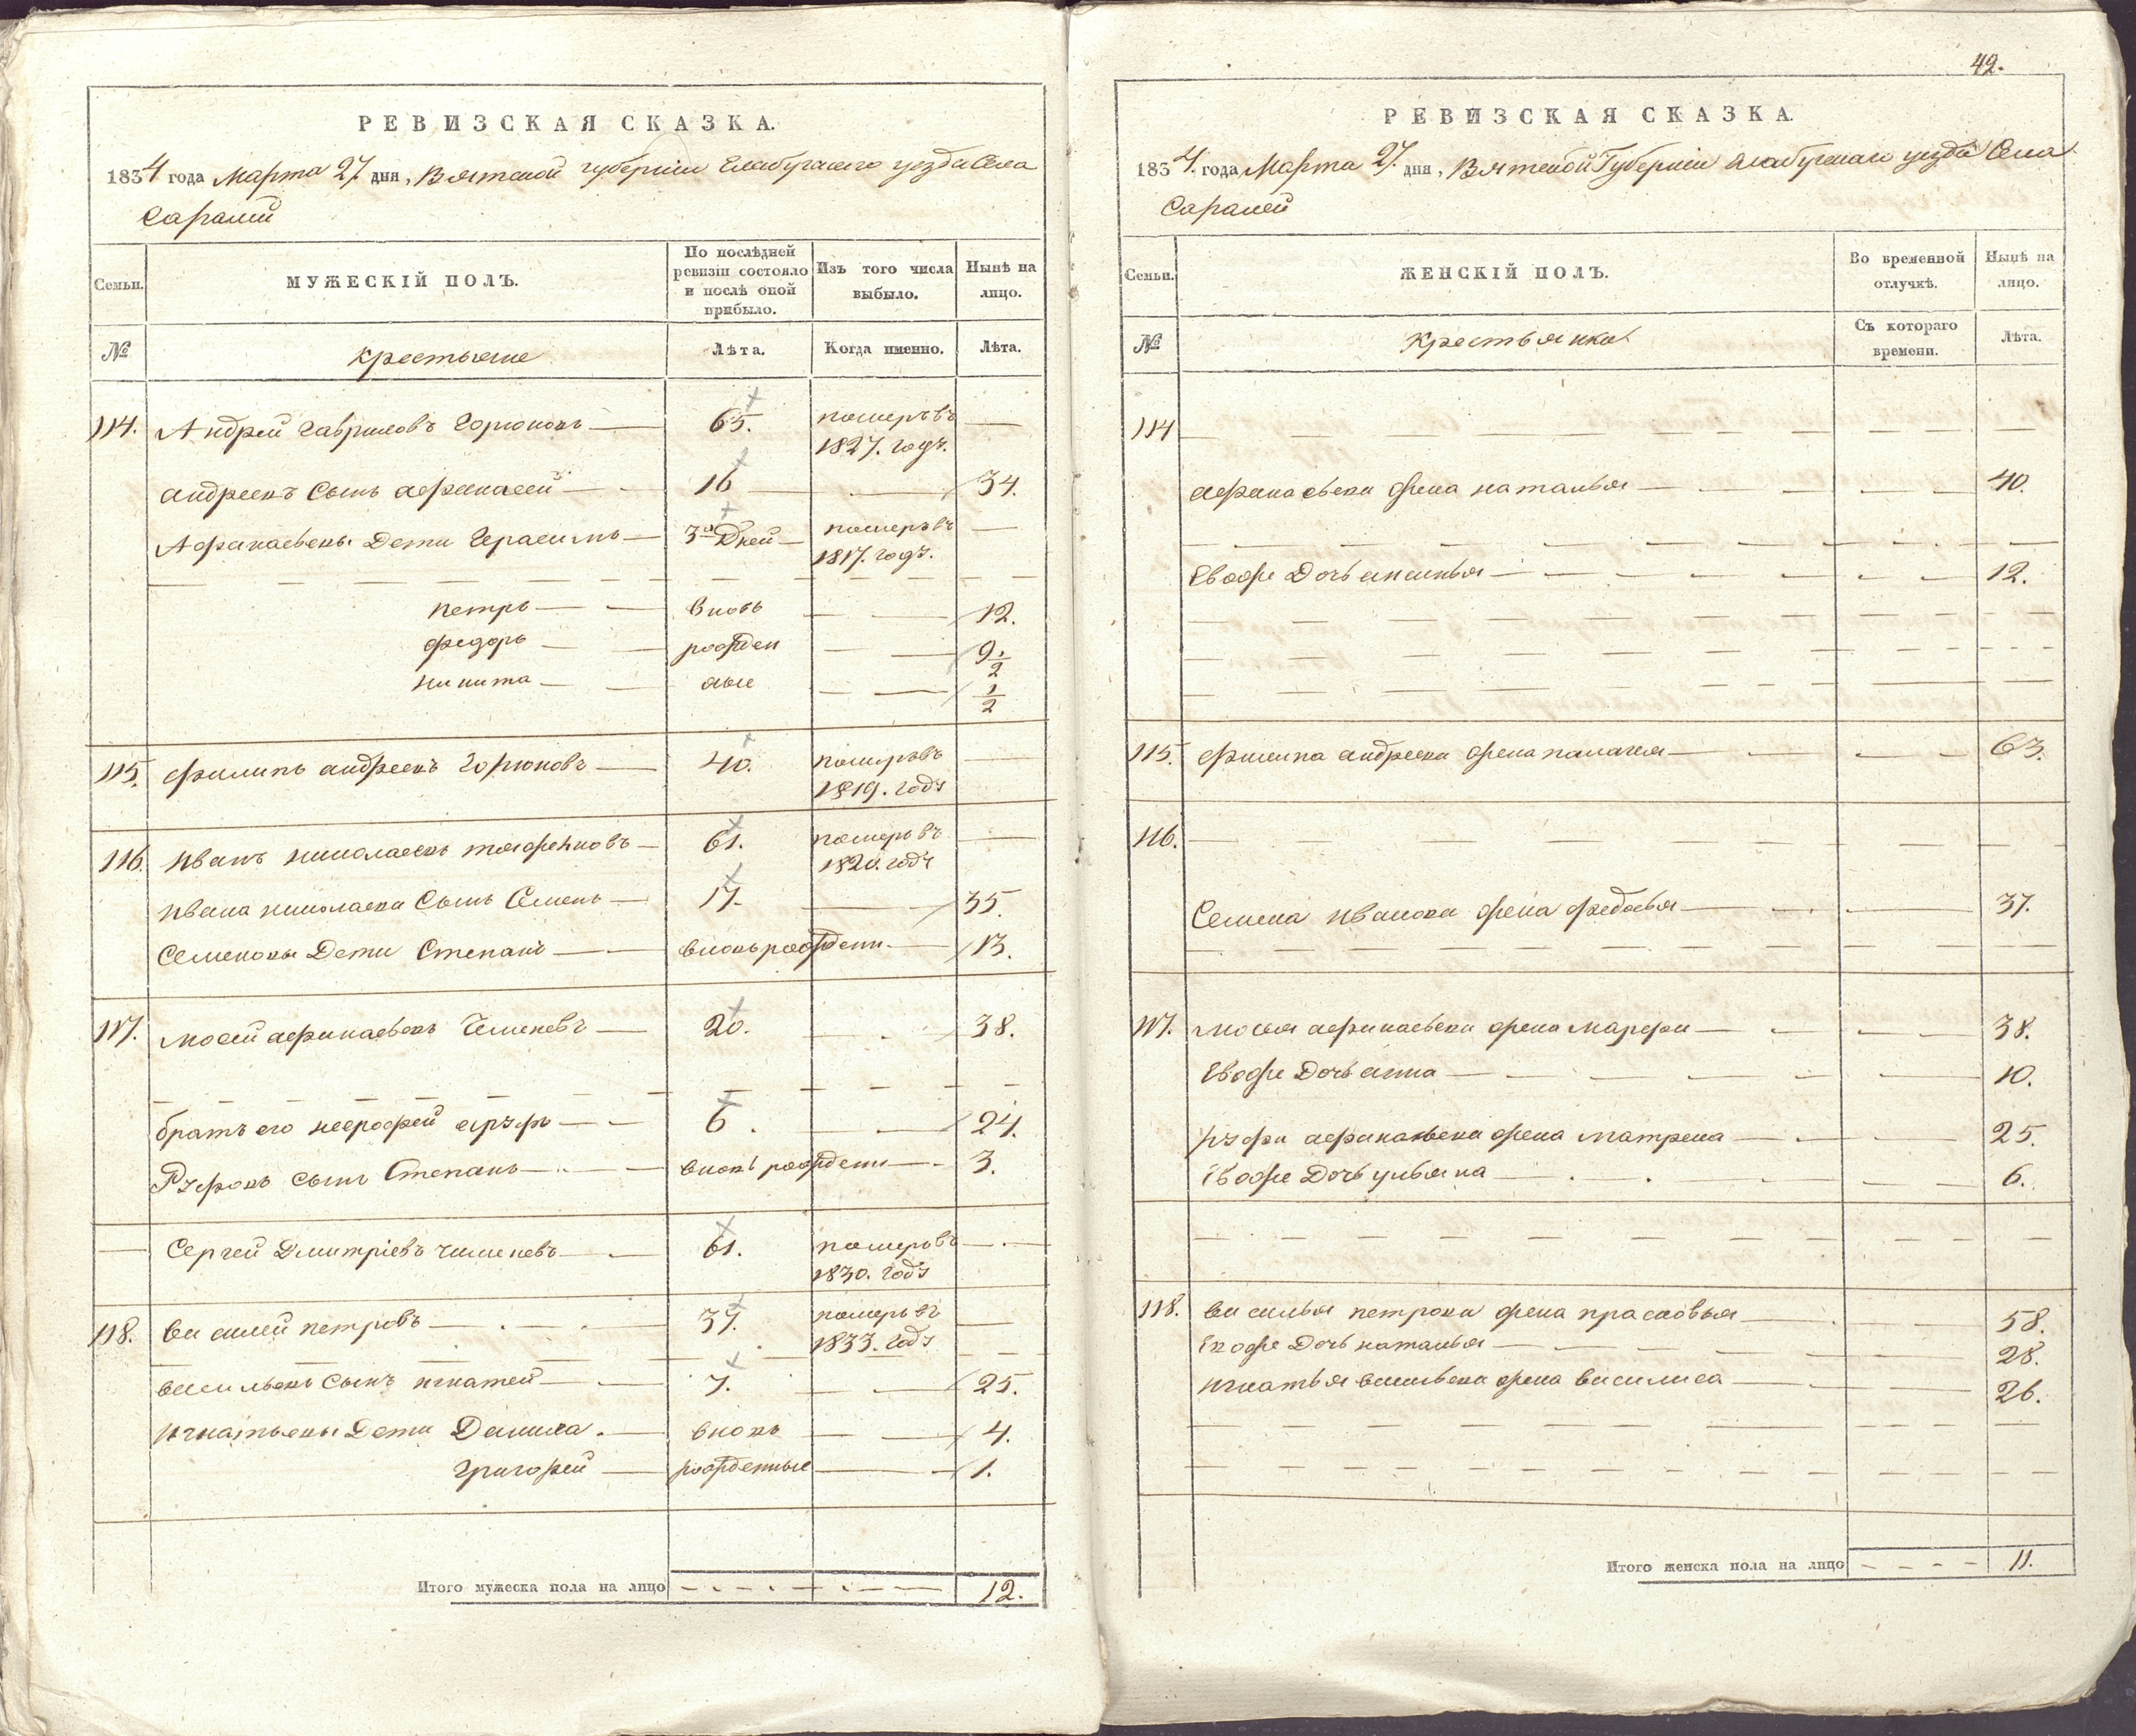 РЕВИЗСКАЯ СКАЗКА.
1834 года Марта 27. дня, Вятской губернии Елабугскаго уезда Села
Саралей
Семьи.
МУЖЕСКІЙ ПОЛЪ.
По послѣдней ревизіи состояло и послѣ оной прибыло.
Изъ того числа выбыло.
Нынѣ на лицо.
№
крестьяне
Лѣта.
Когда именно.
Лѣта.
114. Андрей Гавриловъ Горюновъ 65. померъ въ —
1827. годѣ.
андреевъ Сынъ афанасей 16 — 34.
Афанасьевы Дети Герасимъ 3х Дней померъ въ —
1817. годѣ.
петръ вновь — 12.
федоръ рожден — 9 1/2
никита ные — 1/2
115. филипъ андреевъ Горюновъ 40. померъ въ —
1819. годѣ
116. Иванъ николаевъ 61. померъ въ —
1820. годѣ
ивана николаева Сынъ Семенъ 17. — 35.
Семеновы Дети Степанъ вновь рожден. — 13.
117. мосей афанасьевъ 20. — 38.
братъ его 6. — 24.
Руфовъ сынъ Степанъ вновь рожден — 3.
— Сергей Дмитріевъ 61. померъ въ —
1830. годѣ
118. василей петровъ 37. померъ въ —
1833. годѣ
васильевъ Сынъ игнатей 7. — 25.
игнатьевы Дети Данила вновь — 4.
григорей рожденные — 1.
Итого мужеска пола на лицо 12.
42.
РЕВИЗСКАЯ СКАЗКА.
1834. года Марта 27. дня, Вятской Губерніи Елабугскаго уезда Села
Саралей
Семьи.
ЖЕНСКІЙ ПОЛЪ.
Во временной отлучкѣ.
Нынѣ на лицо.
№
Крестьянки
Съ котораго времени.
Лѣта.
114
афанасьева жена наталья 40.
Евоже Дочь аксинья 12.
115. филипа андреева жена палагея 63.
116.
Семена Иванова жена федосья 37.
117. мосея афанасьева жена марфа 38.
Евоже Дочь анна 10.
руфа афанасьева жена матрена 25.
Евоже Дочь ульяна 6.
118. василья петрова жена прасковья 58.
Евоже Дочь наталья 28.
игнатья васильева жена василиса 26.
Итого женска пола на лицо 11.